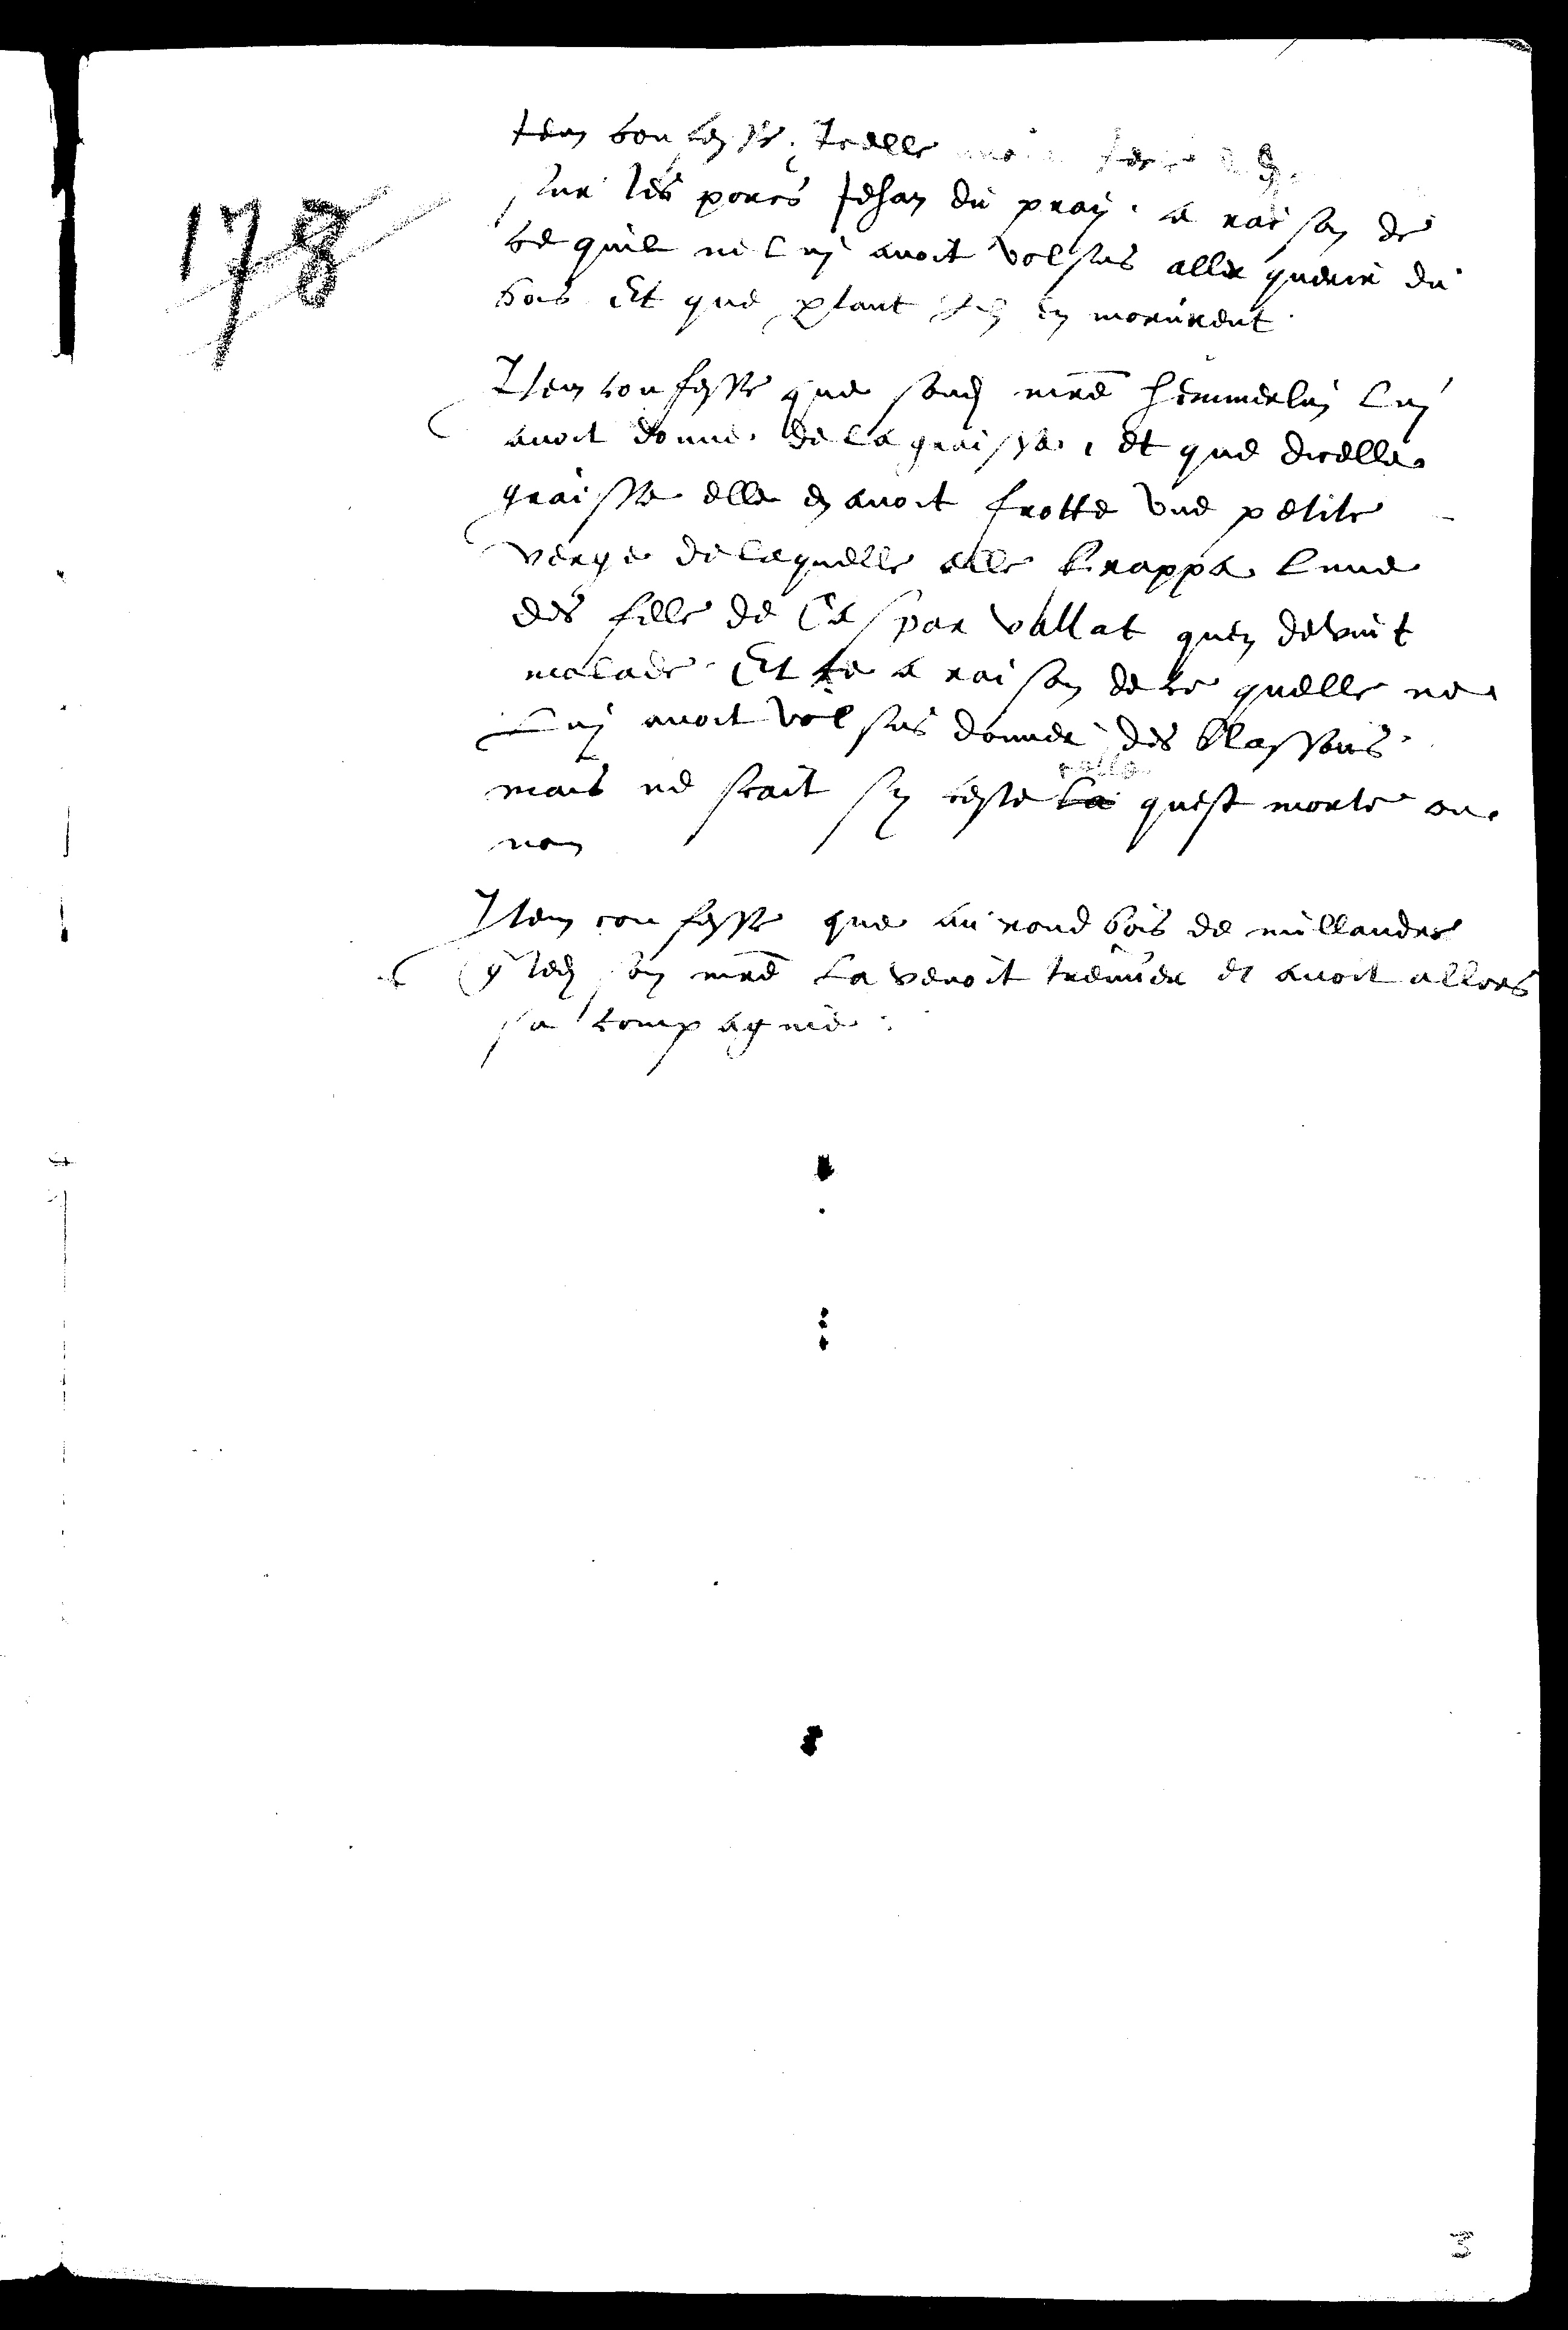 178
Item confesse, Icelle
sur les porcs Jehan du pray. a raison de
ce quil ne luy avoit volsus aller querir du
bois Et que en morurent.
Item confesse que sond mre hemmerlin luy
avoit donne de la graisse, et que dicelle
graisse elle en avoit frotte une petite
verge de laquelle elle frappa lune
des fille de Caspar Vallat quen devint
malade. Et ce a raison de ce quelle ne
Luy avoit volsus donner des blassons.
mais ne scait sy ceste la celle quest morte ou
non
Item confesse que au rond bois de millandre
led son mre la venoit treuver et avoit allors
sa compagnie.
3